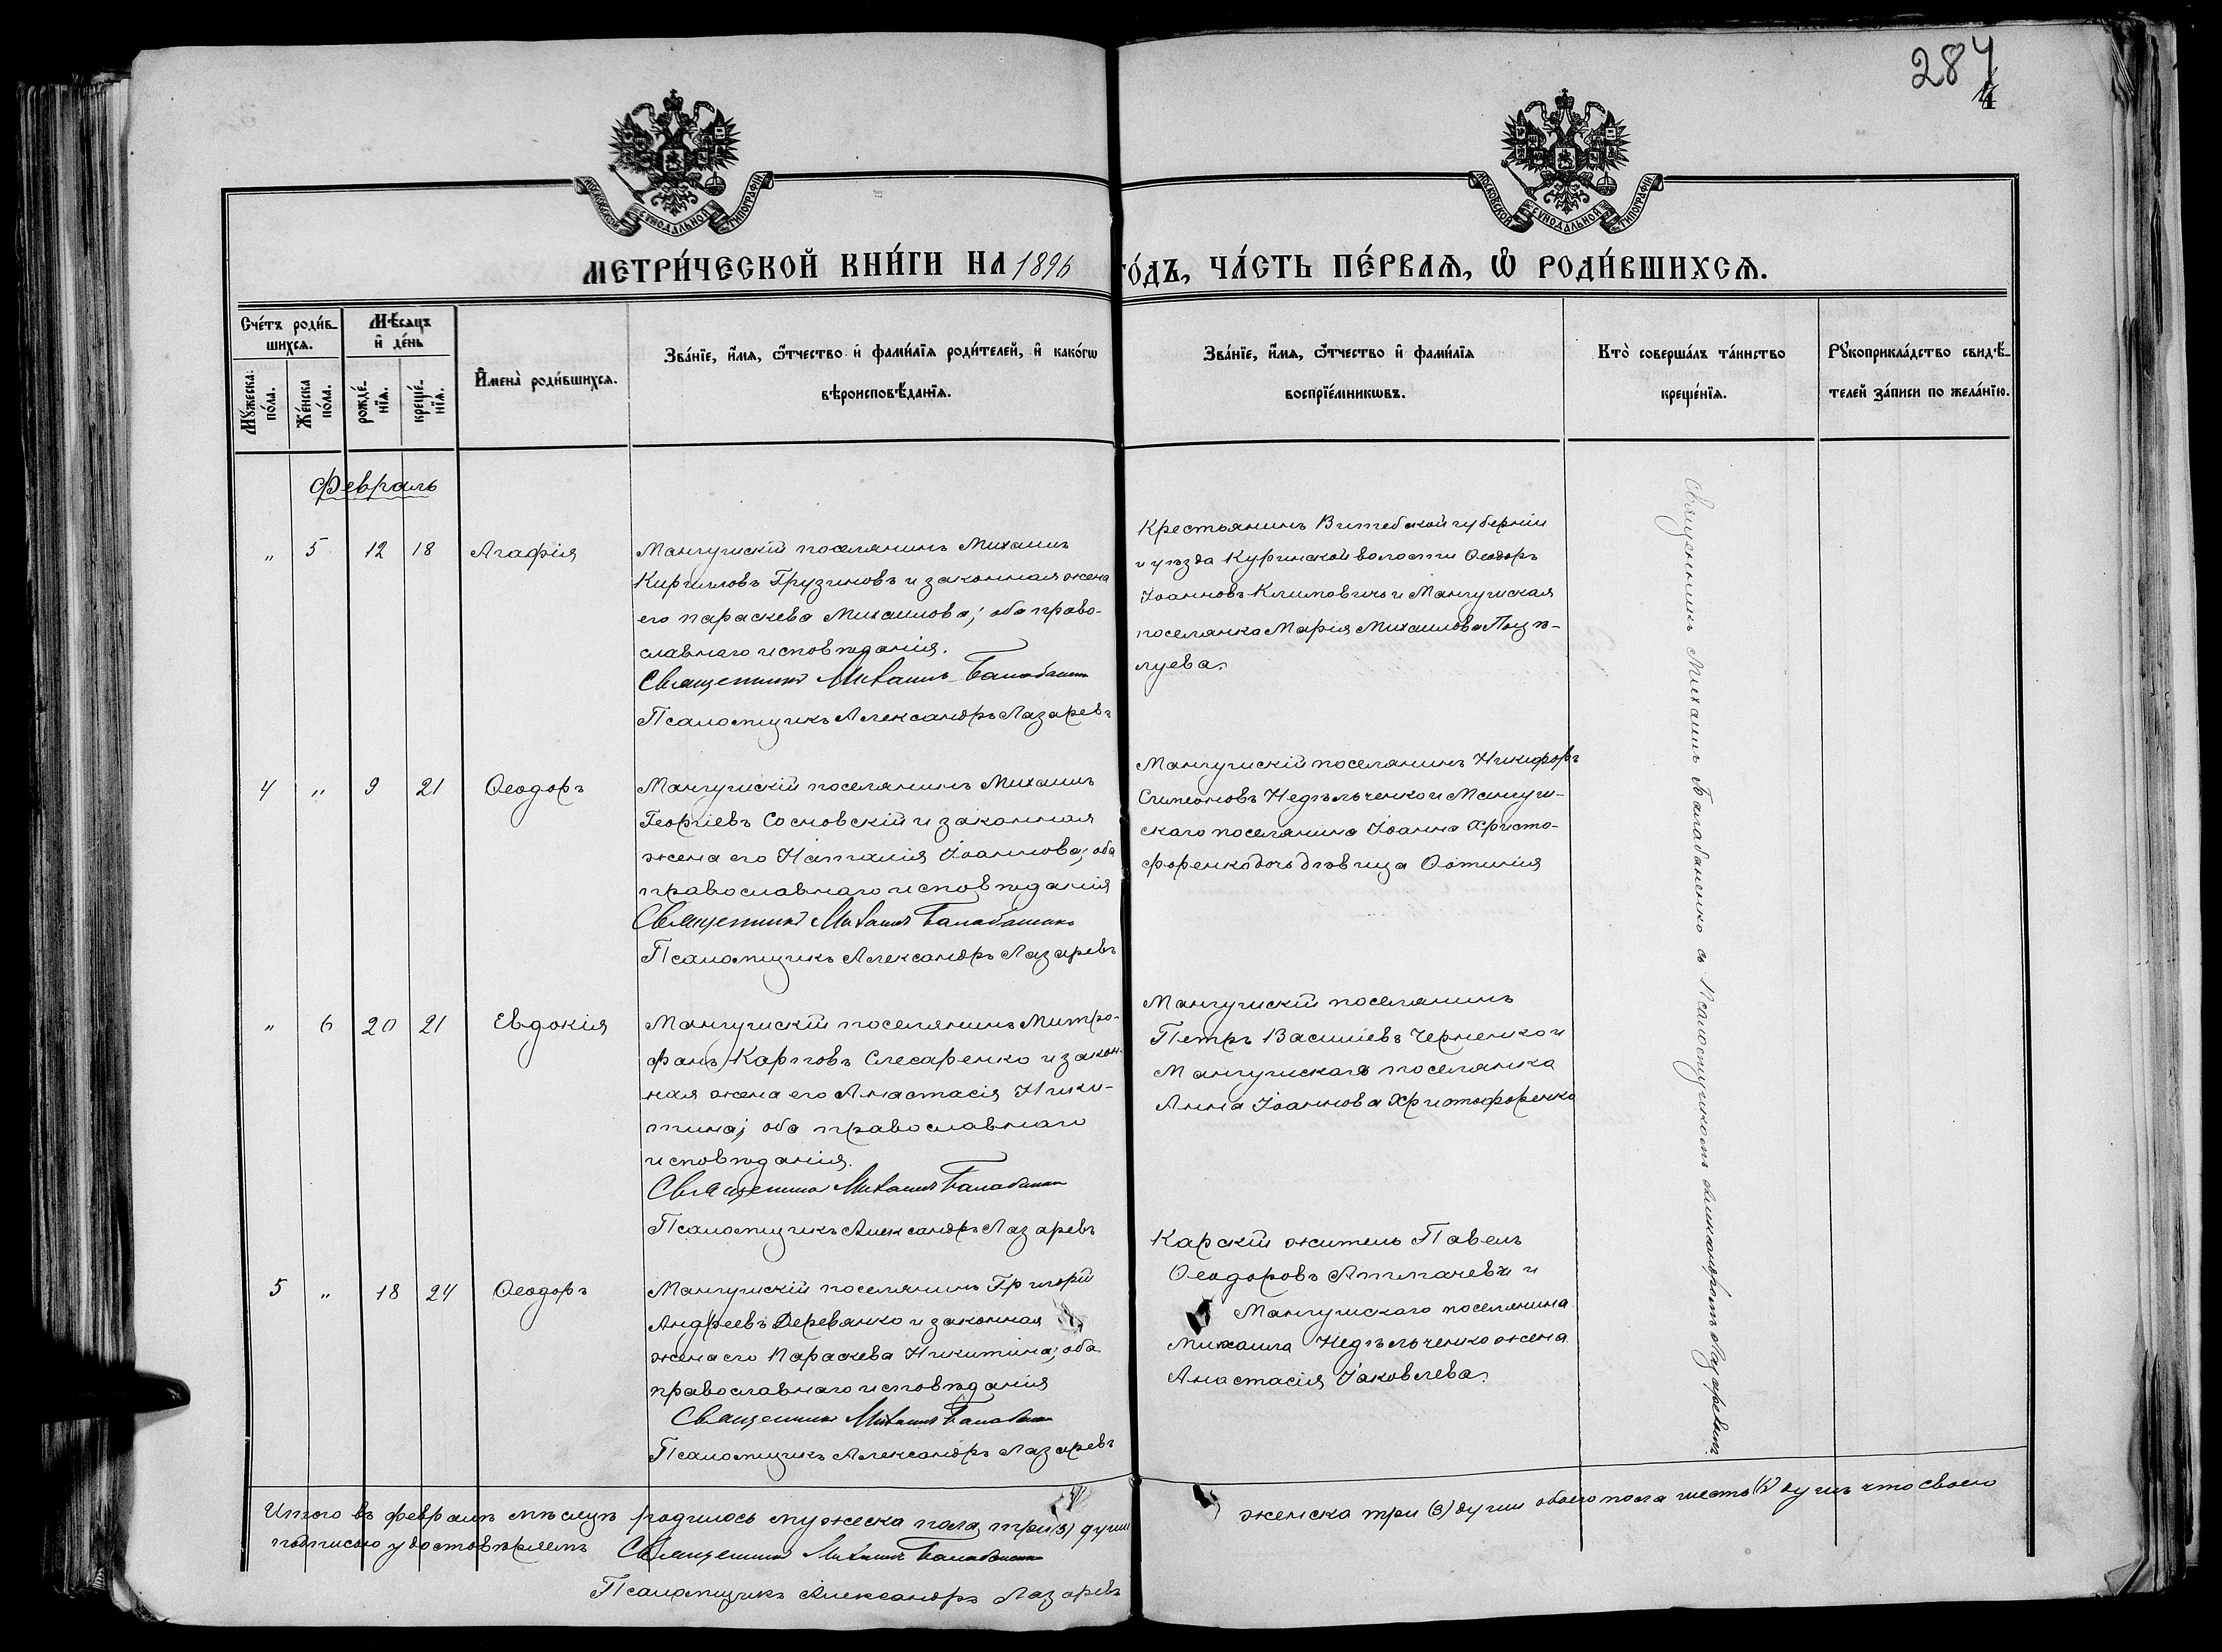 284
МОСКОВСКОЙ СѴНОДАЛЬНОЙ ТИПОГРАФІИ
МОСКОВСКОЙ СѴНОДАЛЬНОЙ ТИПОГРАФІИ
МЕТРИ́ЧЕСКОЙ КНИ́ГИ НА 1896 ГО́ДЪ, ЧА́СТЬ ПЕ́РВАѦ, Ѽ РОДИ́ВШИХСѦ.
Сче́тъ роди́в-
шихсѧ.
Мѣ́сѧцъ
и҆ де́нь
Мꙋ́жеска
по́ла.
Же́нска
по́ла.
рожде́-
нїѧ.
креще́-
нїѧ.
И҆мена̀ роди́вшихсѧ.
Зва́нїе, и҆́мѧ, ѻ҆́тчество и҆ фами́лїѧ роди́телей, и҆ како́гѡ
вѣроисповѣ́данїѧ.
Зва́нїе, и҆́мѧ, ѻ҆́тчество и҆ фами́лїѧ
воспрїе́мникѡвъ.
Кто̀ соверша́лъ та́инство
креще́нїѧ.
Рꙋкоприкла́дство свидѣ́-
телей за́писи по жела́нїю.
Февраль
„ 5 12 18 Агафія
Мангушскій поселянинъ Михаилъ
Кирилловъ Грузиновъ и законная жена
его Параскева Михаилова; оба право-
славнаго исповѣданія.
Священникъ Михаилъ Балабаненко
Псаломщикъ Александръ Лазаревъ
Крестьянинъ Витебской губерніи
и уѣзда Куринской волости Ѳеодоръ
Іоанновъ Климовичъ и Мангушская
поселянка Марія Михаилова
луева.
4 „ 9 21 Ѳеодоръ
Мангушскій поселянинъ Михаилъ
Георгіевъ Сосновскій и законная
жена его Наталія Іоаннова; оба
православнаго исповѣданія
Священникъ Михаилъ Балабаненко
Псаломщикъ Александръ Лазаревъ
Мангушскій поселянинъ Никифоръ
Симеоновъ Недѣльченко и Мангуш-
скаго поселянина Іоанна Христо-
форенко дочь дѣвица
„ 6 20 21 Евдокія
Мангушскій поселянинъ Митро-
фанъ Карповъ Слесаренко и закон-
ная жена его Анастасія Ники-
тина; оба православнаго
исповѣданія.
Священникъ Михаилъ Балабаненко
Псаломщикъ Александръ Лазаревъ
Мангушскій поселянинъ
Петръ Василіевъ Черненко и
Мангушская поселянка
Анна Іоаннова Христофоренко
5 „ 18 24 Ѳеодоръ
Мангушскій поселянинъ Григорій
Андреевъ Деревянко и законная
жена его Параскева Никитина; оба
православнаго исповѣданія
Священникъ Михаилъ Балабаненко
Псаломщикъ Александръ Лазаревъ
Карскій житель Павелъ
Ѳеодоровъ и
Мангушскаго поселянина
Михаила Недѣльченко жена
Анастасія Іаковлева.
Священникъ Михаилъ Балабаненко съ Псаломщикомъ Александромъ Лазаревымъ.
Итого въ февралѣ мѣсяцѣ родилось мужеска пола три (3) души женска три (3) души обоего пола шесть (6) душъ что своею
подписью удостовѣряемъ Священникъ Михаилъ Балабаненко
Псаломщикъ Александръ Лазаревъ